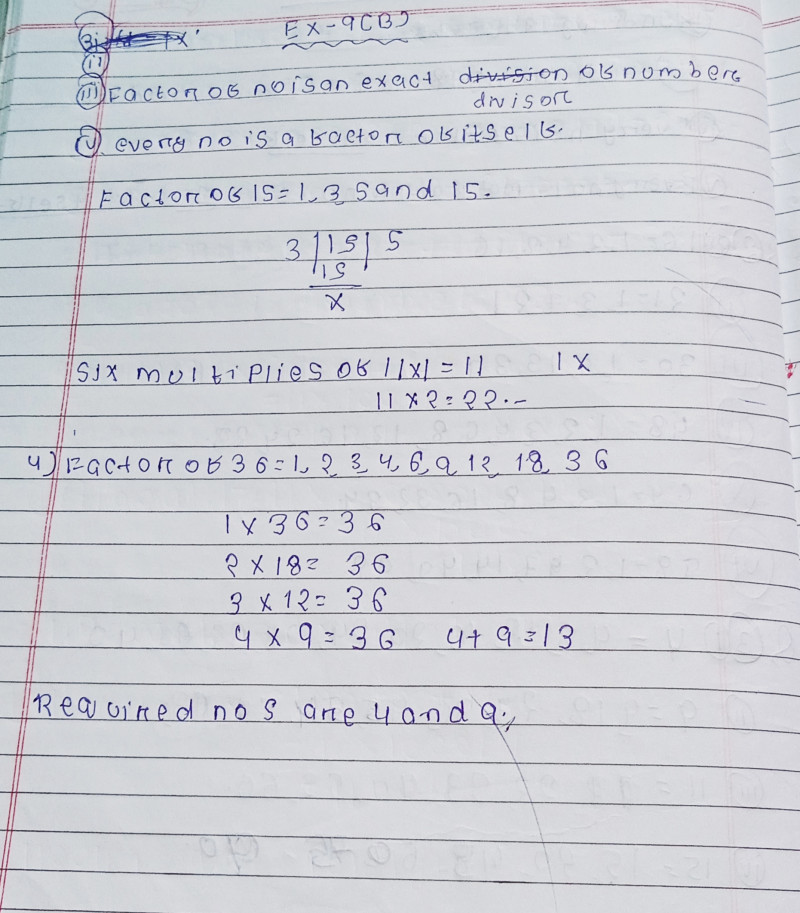 Ex-9(B)
(i)
(iii) Factor of no is an exact division of numbers
divisor
(v) every no is a factor of itself.
Factor of 15 = 1, 3, 5 and 15.
3 | 15 | 5
15
x
Six multiplies of 11x1 = 11 1x
11 x 2 = 22.-
4) Factor of 36 = 1, 2, 3, 4, 6, 9, 12, 18, 36
1 x 36 = 36
2 x 18 = 36
3 x 12 = 36
4 x 9 = 36 4+ 9 = 13
Required no s are 4 and 9.